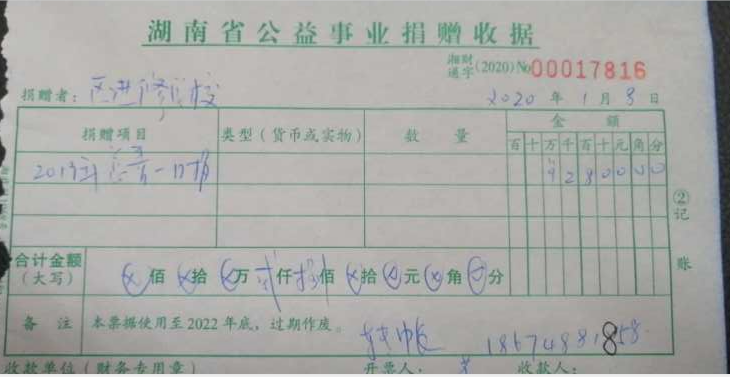 湖南省公益事业捐赠收据
湘财通字(2020)№00017816
捐赠者：区进修学校 2020年1月8日
捐赠项目 类型（货币或实物） 数量 金额
百十万千百十元角分
2019年 一日捐 ¥280000
②记账
合计金额（大写） ⊗佰⊗拾⊗万贰仟捌佰⊗拾⊗元⊗角⊗分
备注 本票据使用至2022年底，过期作废。
18674881858
收款单位（财务专用章） 开票人： 收款人：